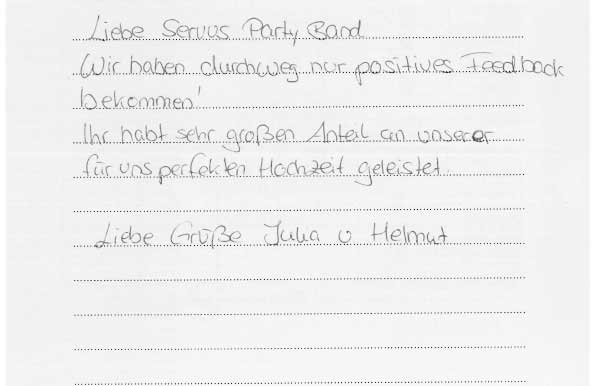 Liebe Servus Party Band
Wir haben durchweg nur positives Feedback
bekommen!
Ihr habt sehr großen Anteil an unserer
für uns perfekten Hochzeit geleistet.
Liebe Grüße Julia u Helmut